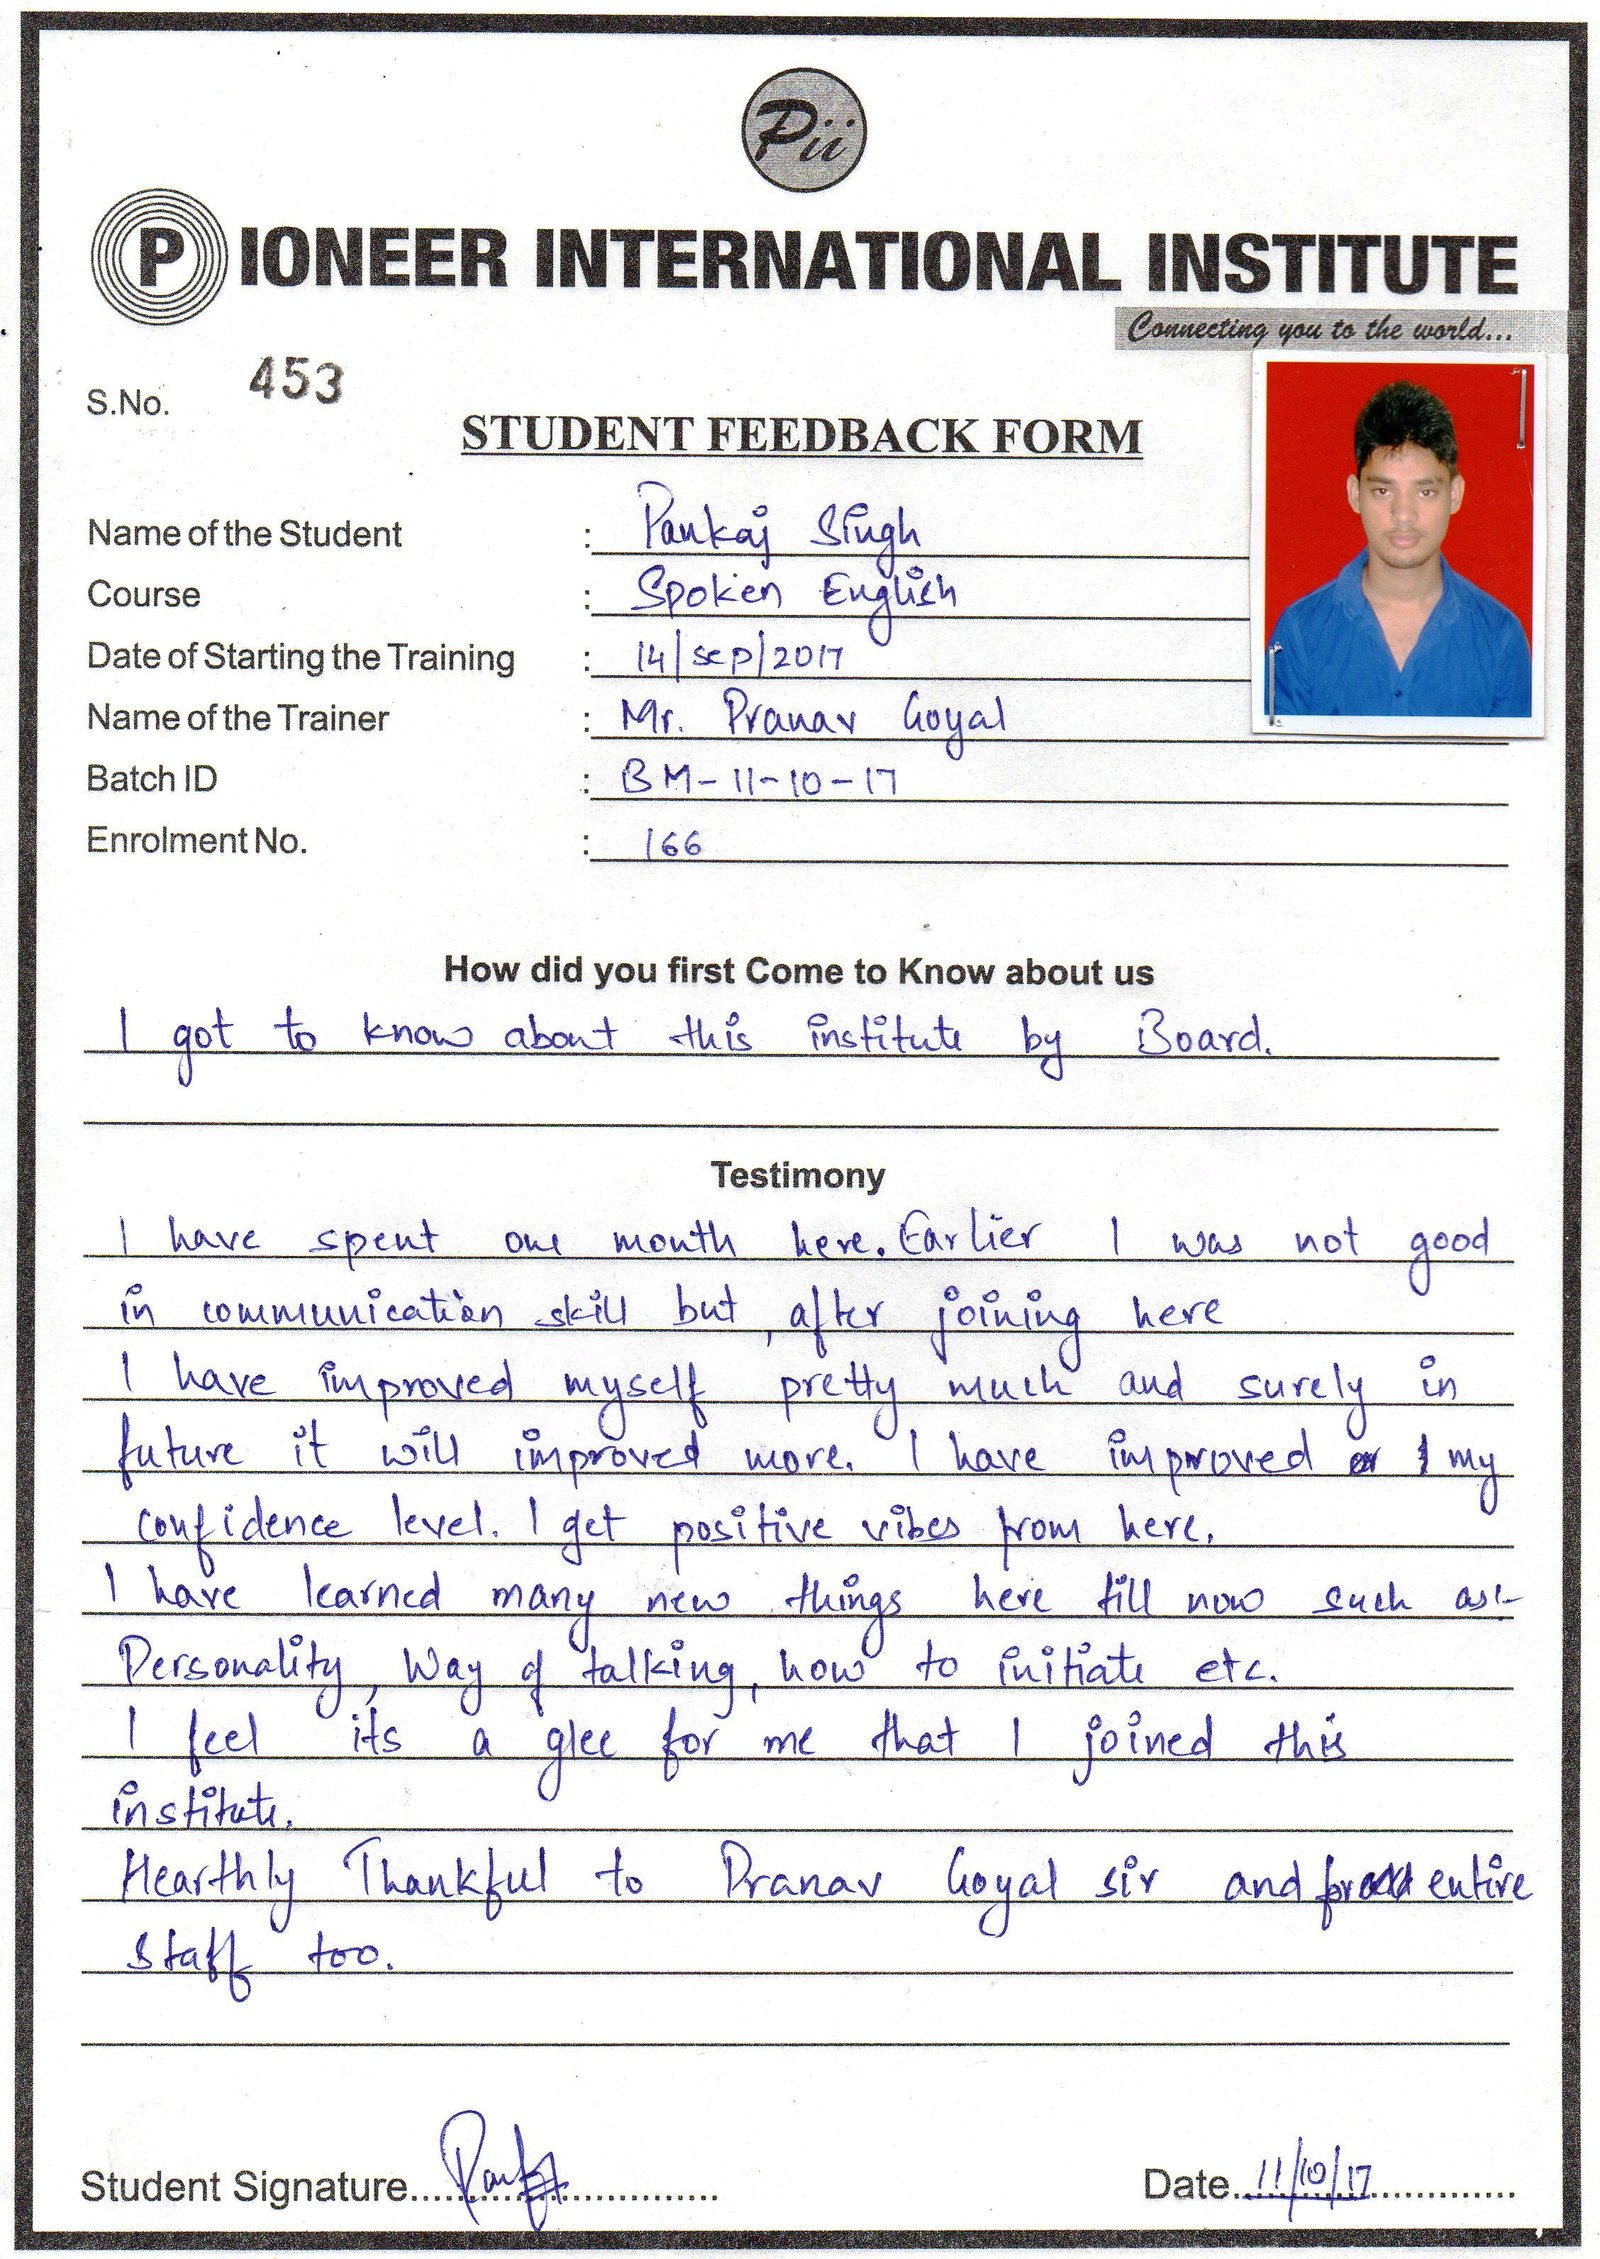 Pii
PIONEER INTERNATIONAL INSTITUTE
Connecting you to the world...
S.No. 453
STUDENT FEEDBACK FORM
Name of the Student : Pankaj Singh
Course : Spoken English
Date of Starting the Training : 14/sep/2017
Name of the Trainer : Mr. Pranav Goyal
Batch ID : BM-11-10-17
Enrolment No. : 166
How did you first Come to Know about us
I got to know about this institute by Board.
Testimony
I have spent one month here. Earlier I was not good
in communication skill but, after joining here
I have improved myself pretty much and surely in
future it will improved more. I have improved my
confidence level. I get positive vibes from here.
I have learned many new things here till now such as:-
Personality, Way of talking, how to initiate etc.
I feel its a glee for me that I joined this
institute.
Hearthly Thankful to Pranav Goyal sir and entire
staff too.
Student Signature.............................. Date 11/10/17